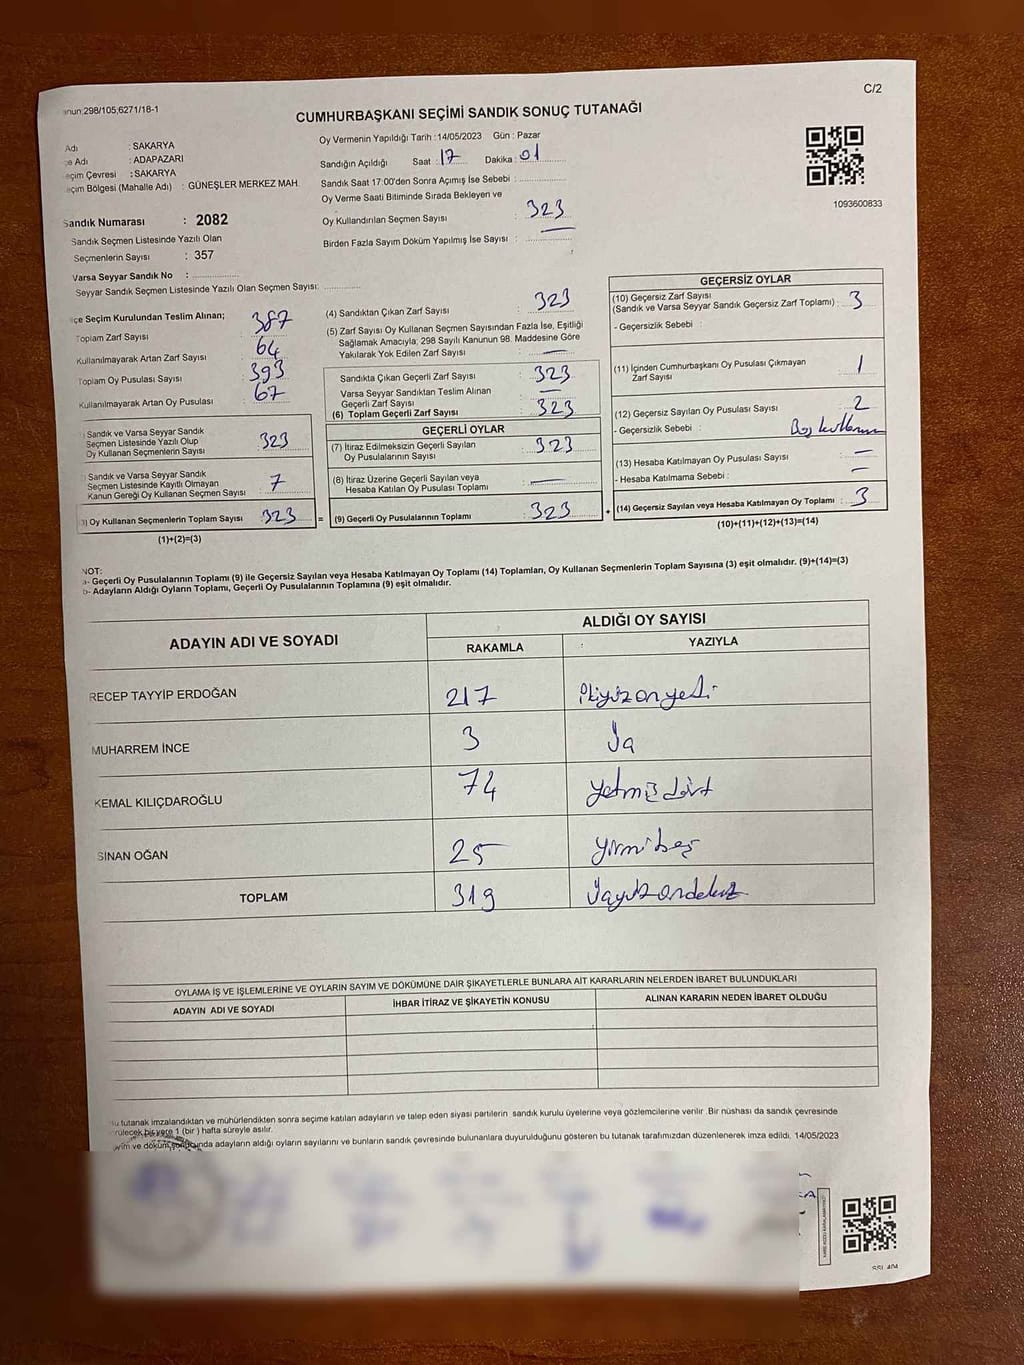 anun:298/105;6271/18-1
C/2
CUMHURBAŞKANI SEÇİMİ SANDIK SONUÇ TUTANAĞI
Adı : SAKARYA
çe Adı : ADAPAZARI
eçim Çevresi : SAKARYA
eçim Bölgesi (Mahalle Adı) : GÜNEŞLER MERKEZ MAH.
Oy Vermenin Yapıldığı Tarih :14/05/2023 Gün : Pazar
Sandığın Açıldığı Saat : 17 Dakika : 01
Sandık Saat 17:00'den Sonra Açımış İse Sebebi :
Oy Verme Saati Bitiminde Sırada Bekleyen ve
Oy Kullandırılan Seçmen Sayısı : 323
Birden Fazla Sayım Döküm Yapılmış İse Sayısı :
1093600833
Sandık Numarası : 2082
Sandık Seçmen Listesinde Yazılı Olan
Seçmenlerin Sayısı : 357
Varsa Seyyar Sandık No :
Seyyar Sandık Seçmen Listesinde Yazılı Olan Seçmen Sayısı:
çe Seçim Kurulundan Teslim Alınan;
Toplam Zarf Sayısı : 387
Kullanılmayarak Artan Zarf Sayısı : 64
Toplam Oy Pusulası Sayısı : 393
Kullanılmayarak Artan Oy Pusulası : 67
) Sandık ve Varsa Seyyar Sandık
Seçmen Listesinde Yazılı Olup
Oy Kullanan Seçmenlerin Sayısı : 323
) Sandık ve Varsa Seyyar Sandık
Seçmen Listesinde Kayıtlı Olmayan
Kanun Gereği Oy Kullanan Seçmen Sayısı : 7
) Oy Kullanan Seçmenlerin Toplam Sayısı : 323 =
(1)+(2)=(3)
(4) Sandıktan Çıkan Zarf Sayısı : 323
(5) Zarf Sayısı Oy Kullanan Seçmen Sayısından Fazla İse, Eşitliği
Sağlamak Amacıyla; 298 Sayılı Kanunun 98. Maddesine Göre
Yakılarak Yok Edilen Zarf Sayısı : —
Sandıkta Çıkan Geçerli Zarf Sayısı : 323
Varsa Seyyar Sandıktan Teslim Alınan
Geçerli Zarf Sayısı : —
(6) Toplam Geçerli Zarf Sayısı : 323
GEÇERLİ OYLAR
(7) İtiraz Edilmeksizin Geçerli Sayılan
Oy Pusulalarının Sayısı : 323
(8) İtiraz Üzerine Geçerli Sayılan veya
Hesaba Katılan Oy Pusulası Toplamı : —
(9) Geçerli Oy Pusulalarının Toplamı : 323 +
GEÇERSİZ OYLAR
(10) Geçersiz Zarf Sayısı
(Sandık ve Varsa Seyyar Sandık Geçersiz Zarf Toplamı) : 3
- Geçersizlik Sebebi :
(11) İçinden Cumhurbaşkanı Oy Pusulası Çıkmayan
Zarf Sayısı : 1
(12) Geçersiz Sayılan Oy Pusulası Sayısı : 2
- Geçersizlik Sebebi : Boş kullanım
(13) Hesaba Katılmayan Oy Pusulası Sayısı : —
- Hesaba Katılmama Sebebi : —
(14) Geçersiz Sayılan veya Hesaba Katılmayan Oy Toplamı : 3
(10)+(11)+(12)+(13)=(14)
NOT:
a- Geçerli Oy Pusulalarının Toplamı (9) ile Geçersiz Sayılan veya Hesaba Katılmayan Oy Toplamı (14) Toplamları, Oy Kullanan Seçmenlerin Toplam Sayısına (3) eşit olmalıdır. (9)+(14)=(3)
b- Adayların Aldığı Oyların Toplamı, Geçerli Oy Pusulalarının Toplamına (9) eşit olmalıdır.
ADAYIN ADI VE SOYADI
ALDIĞI OY SAYISI
RAKAMLA YAZIYLA
RECEP TAYYİP ERDOĞAN 217 İkiyüzonyedi
MUHARREM İNCE 3 Üç
KEMAL KILIÇDAROĞLU 74 yetmişdört
SİNAN OĞAN 25 yirmibeş
TOPLAM 319 üçyüzondokuz
OYLAMA İŞ VE İŞLEMLERİNE VE OYLARIN SAYIM VE DÖKÜMÜNE DAİR ŞİKAYETLERLE BUNLARA AİT KARARLARIN NELERDEN İBARET BULUNDUKLARI
ADAYIN ADI VE SOYADI İHBAR İTİRAZ VE ŞİKAYETİN KONUSU ALINAN KARARIN NEDEN İBARET OLDUĞU
u tutanak imzalandıktan ve mühürlendikten sonra seçime katılan adayların ve talep eden siyasi partilerin sandık kurulu üyelerine veya gözlemcilerine verilir .Bir nüshası da sandık çevresinde
rülecek bir yere 1 (bir ) hafta süreyle asılır.
ayım ve döküm sonucunda adayların aldığı oyların sayılarını ve bunların sandık çevresinde bulunanlara duyurulduğunu gösteren bu tutanak tarafımızdan düzenlenerek imza edildi. 14/05/2023